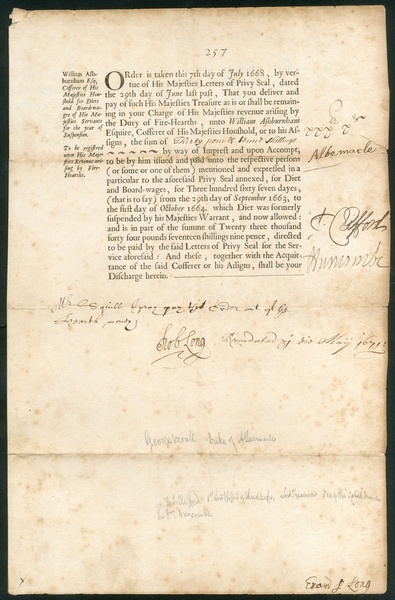 257
William Ash-
burnham Esq;
Cofferer of His
Majesties Hou-
shold for Diets
and Boardwa-
ges of His Ma-
jesties Servants
for the year of
Suspension.
To be registred
upon His Maje-
sties Revenue ari-
sing by Fire-
Hearths.
ORder is taken this 7th day of July 1668, by ver-
tue of His Majesties Letters of Privy Seal, dated
the 29th day of June last past, That you deliver and
pay of such His Majesties Treasure as is or shall be remain-
ing in your Charge of His Majesties revenue arising by
the Duty of Fire-Hearths, unto William Ashburnham
Esquire, Cofferer of His Majesties Houshold, or to his As-
signs, the sum of Thirty pounds shillings
by way of Imprest and upon Accompt,
to be by him issued and paid unto the respective persons
(or some or one of them) mentioned and expressed in a
particular to the aforesaid Privy Seal annexed, for Diet
and Board-wages, for Three hundred sixty seven dayes,
(that is to say) from the 29th day of September 1663, to
the first day of October 1664. which Diet was formerly
suspended by his Majesties Warrant, and now allowed:
and is in part of the summe of Twenty three thousand
forty four pounds seventeen shillings nine pence, directed
to be paid by the said Letters of Privy Seal for the Ser-
vice aforesaid: And these, together with the Acquit-
tance of the said Cofferer or his Assigns, shall be your
Discharge herein.
Albemarle
Clifford
Duncombe
pay this Order out of
Hearth money
Rob Long
die Maij 1671
George Monk Duke of Albemarle
Duncombe
Exam p Long